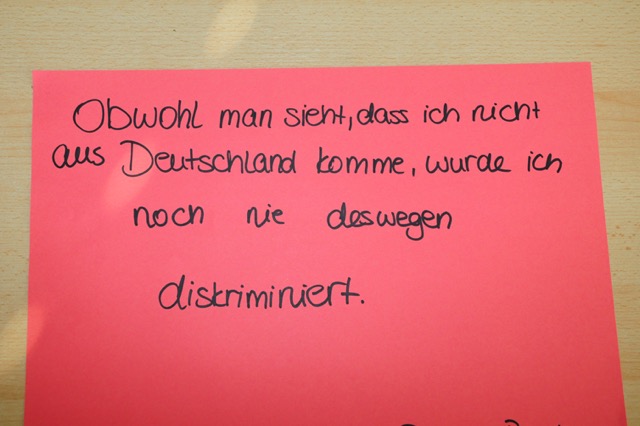 Obwohl man sieht, dass ich nicht
aus Deutschland komme, wurde ich
noch nie deswegen
diskriminiert.